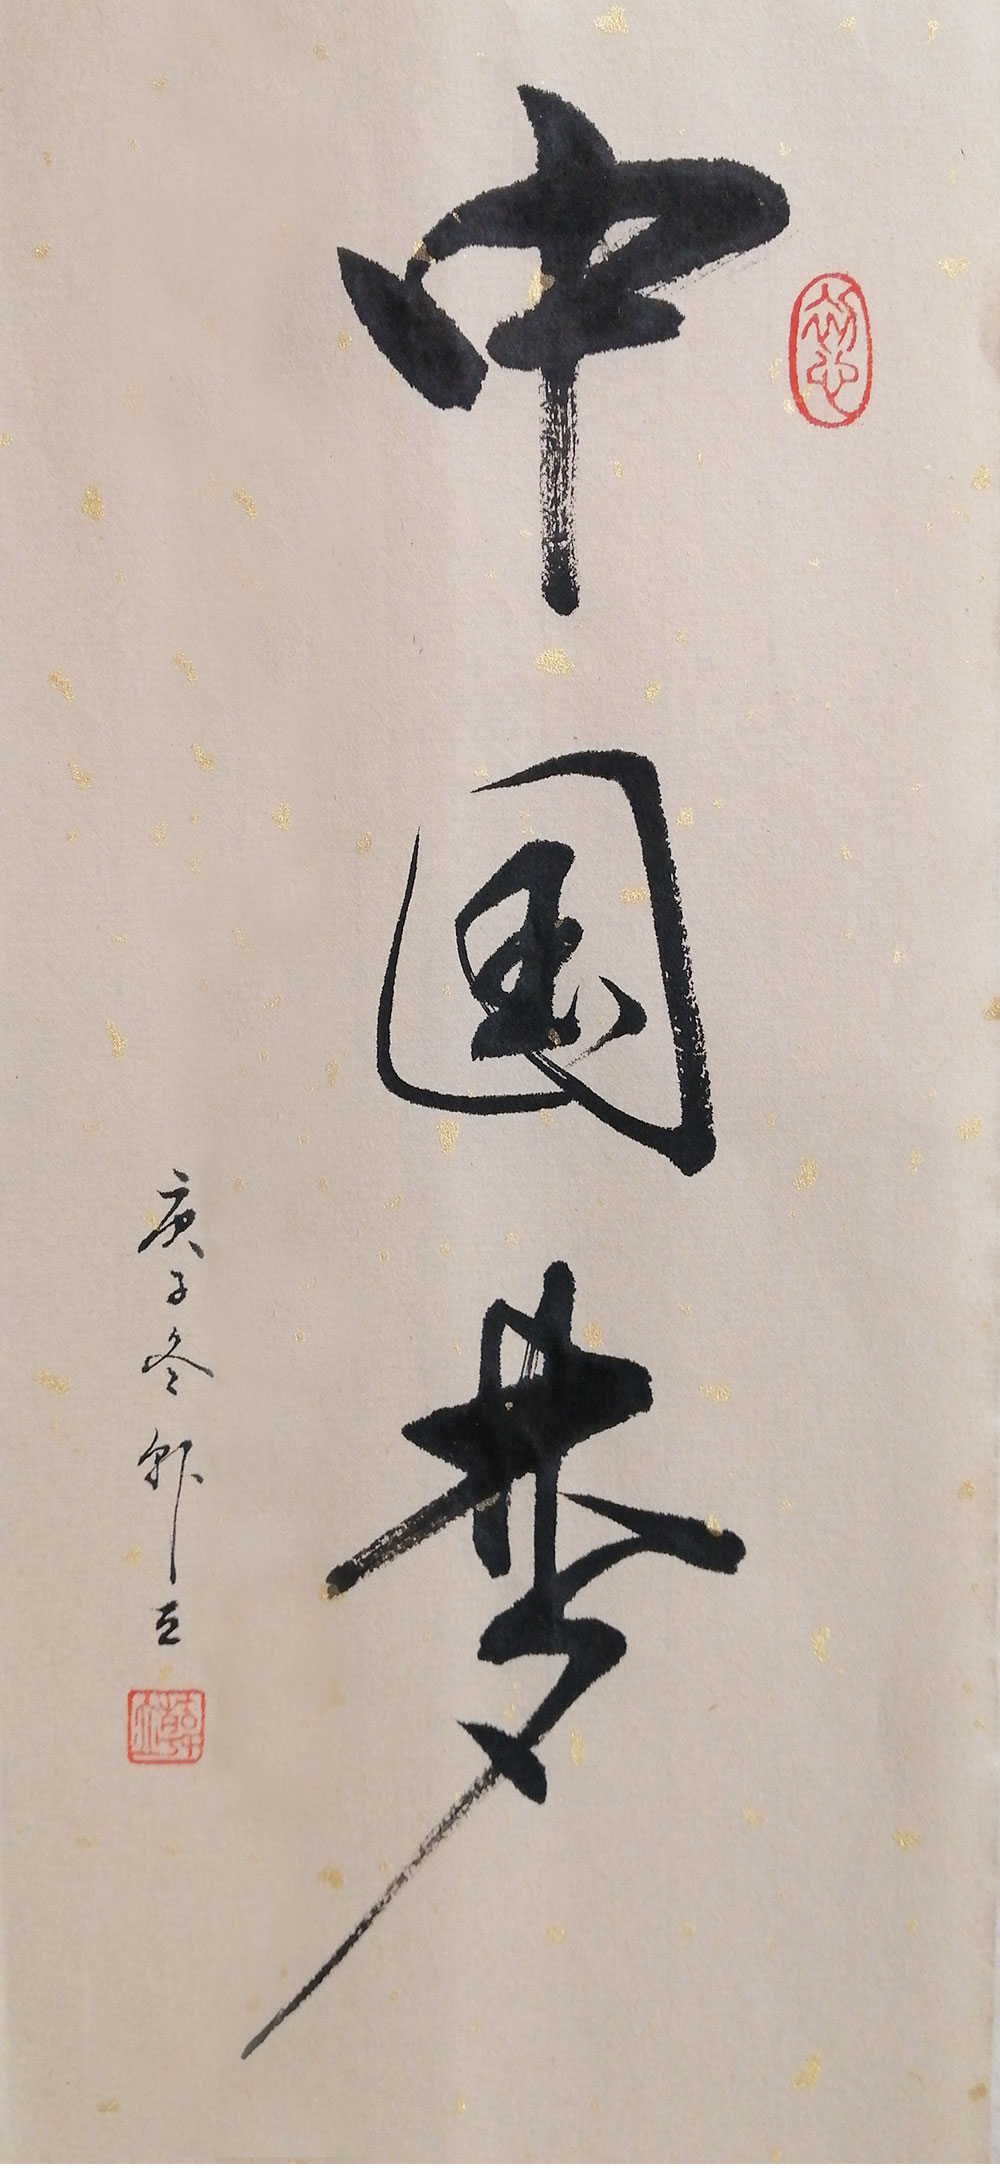 中国梦
庚子冬